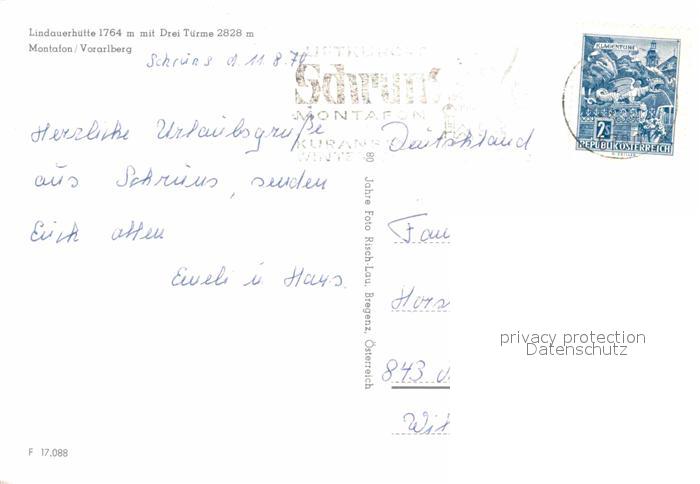 Lindauerhütte 1764 m mit Drei Türme 2828 m
Montafon/Vorarlberg
Schruns d. 11.8.70
LUFTKURORT
Schruns
MONTAFON
KURANST
WINTER
KLAGENFURT
2S
REPUBLIK ÖSTERREICH
Herzliche Urlaubsgrüße
aus Schruns, senden
Euch allen
Eweli u. Hans.
80 Jahre Foto Risch-Lau, Bregenz, Österreich
Deutschland
Fam
Hors
843
Wit
privacy protection
Datenschutz
F 17.088